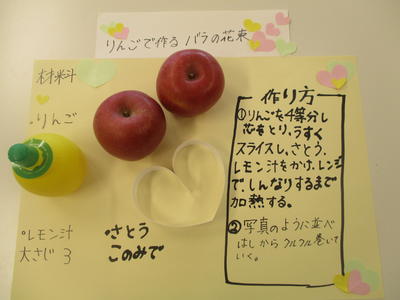 りんごで作る バラの花束
材料
・りんご
・レモン汁
大さじ3
・さとう
このみで
作り方
①りんごを4等分し
芯をとり、うすく
スライスし、さとう、
レモン汁をかけ、レンジ
でしんなりするまで
加熱する。
②写真のように並べ
はしからクルクル巻いて
いく。